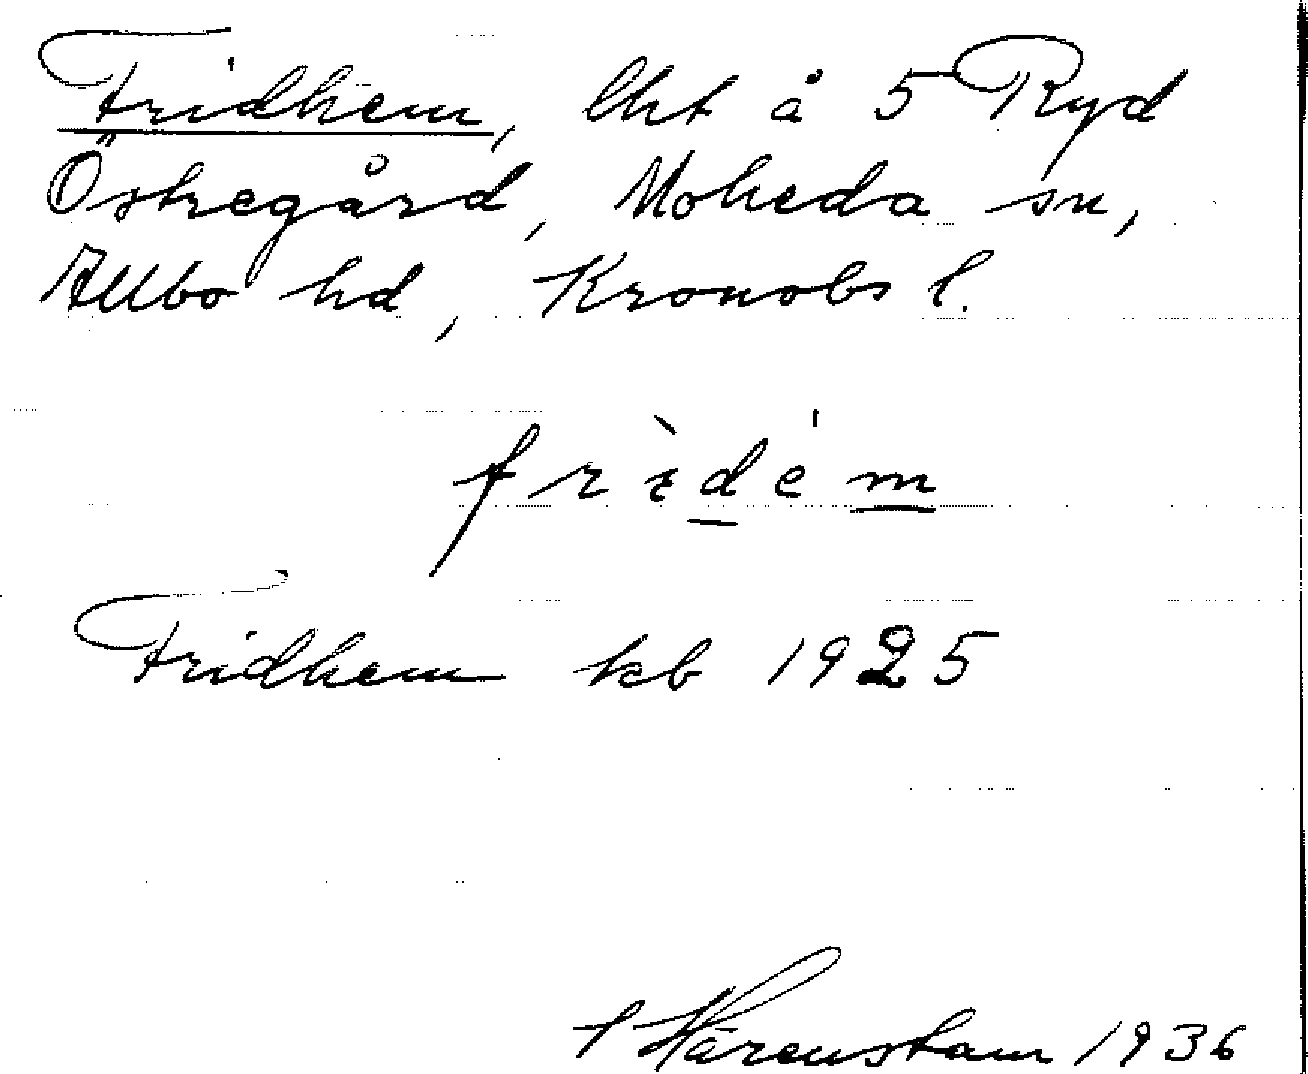 Fridhem, lht å 5 Ryd
Östregård, Moheda sn,
Allbo hd, Kronobs l.
frìdém
Fridhem kb 1925
f Härenstam 1936